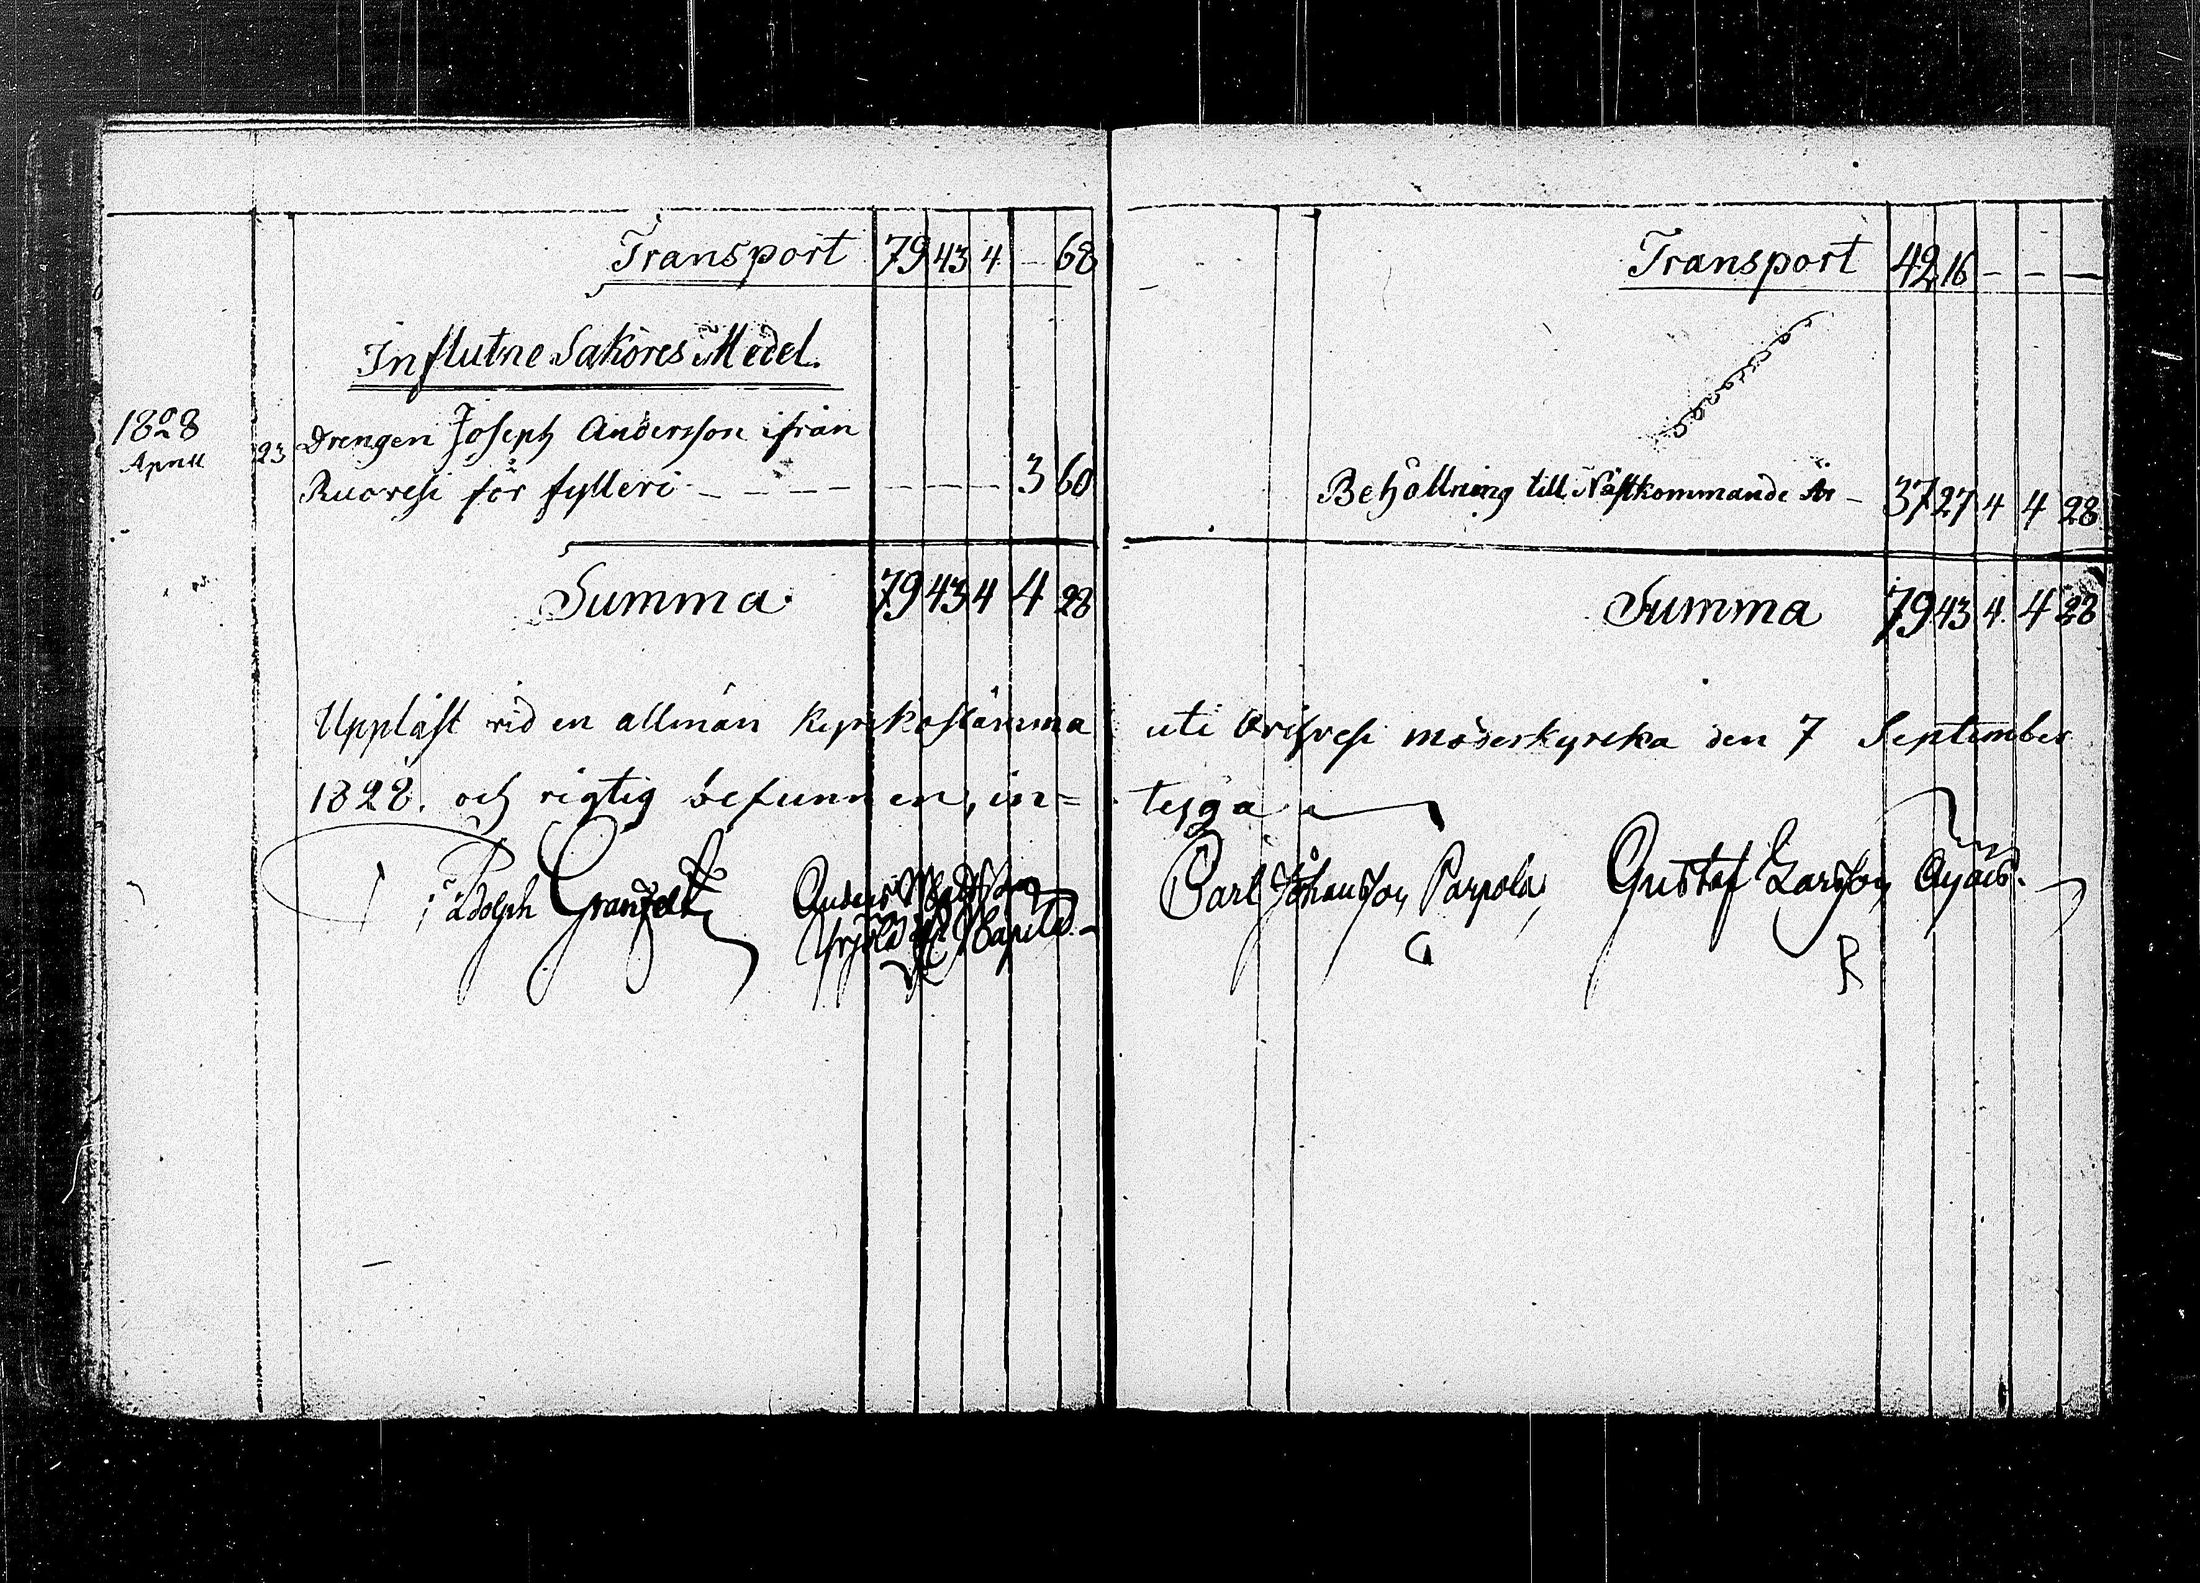 Transport 79 43 4 - 68
Influtne Saköres Medel.
1828
April 23 Drengen Joseph Andersson ifrån
Ruovesi för fylleri - - - - - - - 3 60
Summa 79 43 4 4 28
Uppläst vid en allmän Kyrkostämma
1828. och rigtig befunnen, in=
Adolph Granfelt
Anders
Transport 42 16 - - -
Behållning till Nästkommande År - 37 27 4 4 28
Summa 79 43 4 4 28
uti Orisvesi moderkyrka den 7 September
tyga
Carl Johansson Parpola, Gustaf Larsson Äyäis.